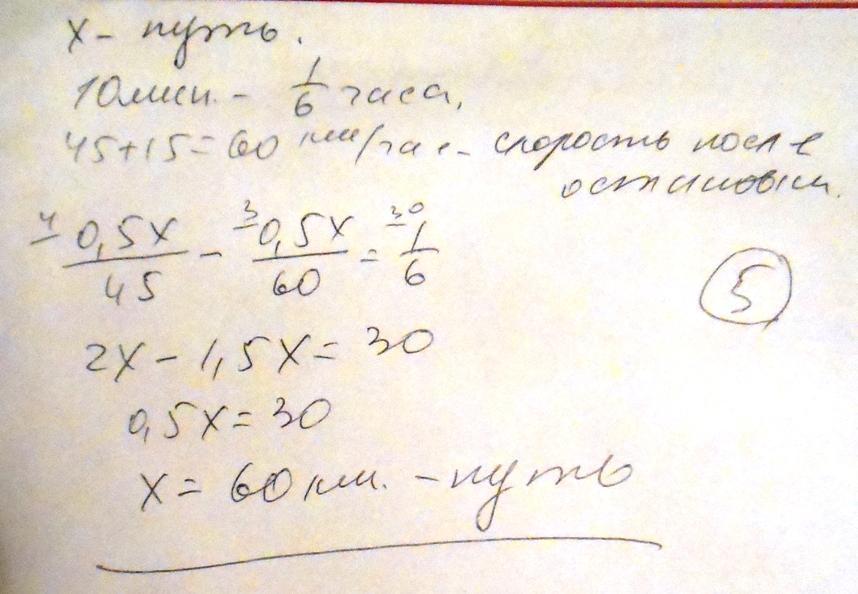 x - путь.
10 мин. - 1/6 часа.
45+15=60 км/час - скорость после
остановки.
4 0,5x/45 - 3 0,5x/60 = 30 1/6
5
2x - 1,5x = 30
0,5x = 30
x = 60 км. - путь